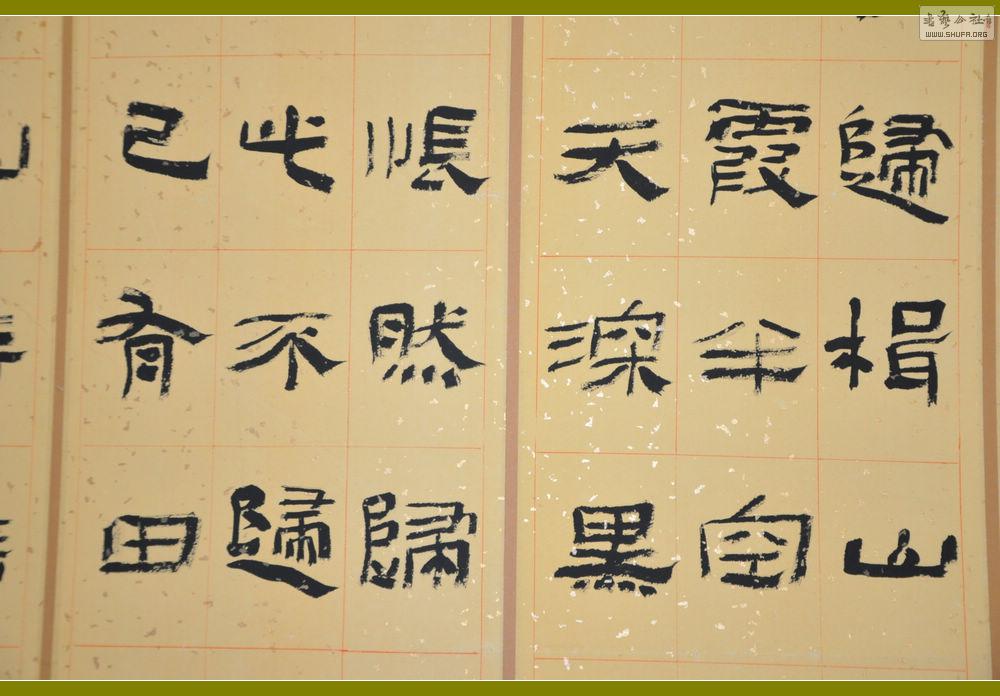 歸楫山
霞半空
天深黑
悵然歸
此不歸
已有田
書藝公社
WWW.SHUFA.ORG